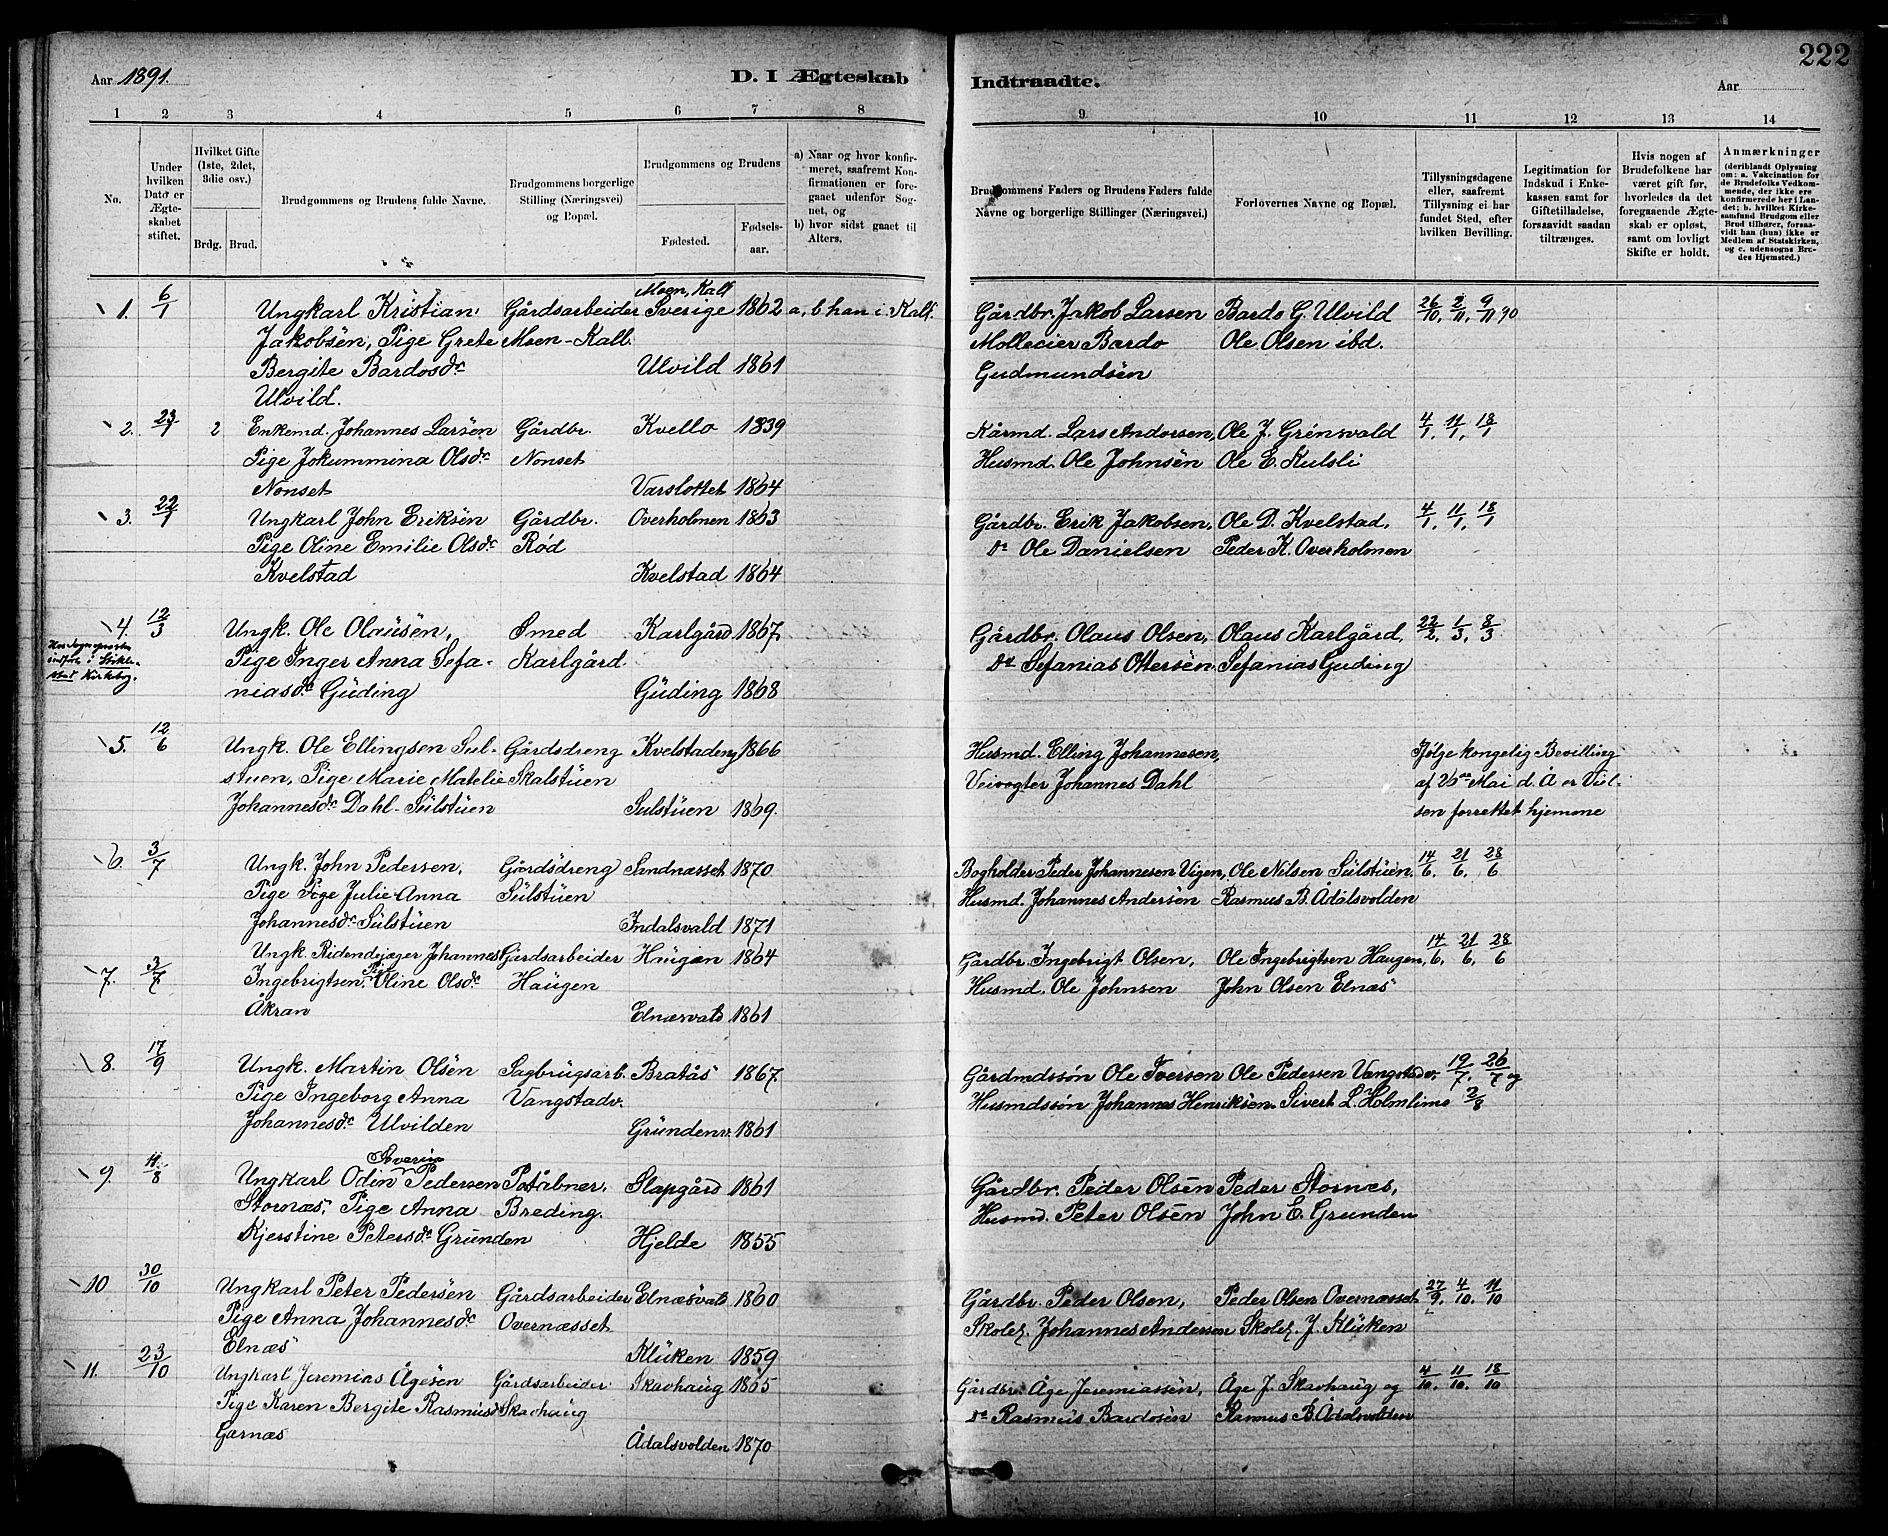 222
Aar 1891.
D. I Ægteskab
Indtraadte.
Aar
1 2 3 4 5 6 7 8 9 10 11 12 13 14
No.
Under hvilken Dato er Ægteskabet stiftet.
Hvilket Gifte (1ste, 2det, 3die osv.)
Brdg. Brud.
Brudgommens og Brudens fulde Navne.
Brudgommens borgerlige Stilling (Næringsvei) og Bopæl.
Brudgommens og Brudens
Fødested.
Fødselsaar.
a) Naar og hvor konfirmeret, saafremt Konfirmationen er foregaaet udenfor Sognet, og
b) hvor sidst gaaet til Alters.
Brudgommens Faders og Brudens Faders fulde Navne og borgerlige Stillinger (Næringsvei.)
Forlovernes Navne og Bopæl.
Tillysningsdagene eller, saafremt Tillysning ei har fundet Sted, efter hvilken Bevilling.
Legitimation for Indskud i Enkekassen samt for Giftetilladelse, forsaavidt saadan tiltrænges.
Hvis nogen af Brudefolkene har været gift før, hvorledes da det foregaaende Ægteskab er opløst, samt om lovligt Skifte er holdt.
Anmærkninger (deriblandt Oplysning om: a. Vakcination for de Brudefolks Vedkommende, der ikke ere konfirmerede her i Landet; b. hvilket Kirkesamfund Brudgom eller Brud tilhører, forsaavidt han (hun) ikke er Medlem af Statskirken, og c. udensogns Brudes Hjemsted.)
Moen, Kall
1. 6/1 Ungkarl Kristian Gårdsarbeider Sverige 1862 a, b han i Kall. Gårdbr. Jakob Larsen Bardo G. Ulvild 26/10, 2/11, 9/11 90
Jakobsen, Pige Grete Moen-Kall. Mollecier Bardo Ole Olsen ibd.
Bergite Bardosdr Ulvild 1861 Gudmundsen
Ulvild.
2. 23/1 2 Enkemd. Johannes Larsen Gårdbr. Kvello 1839 Kårmd. Lars Andersen, Ole J. Grénsvald 4/1, 11/1, 18/1
Pige Jokummina Olsdr Nonset Husmd. Ole Johnsen Ole E. Kulsli
Nonset Varslottet 1864
3. 22/1 Ungkarl John Eriksen Gårdbr. Overholmen 1863 Gårdbr. Erik Jakobsen, Ole D. Kvelstad, 4/1, 11/1, 18/1
Pige Oline Emilie Olsdr Rød Do Ole Danielsen Peder K. Overholmen
Kvelstad Kvelstad 1864
4. 12/3 Ungk. Ole Olausen, Smed Karlgård 1867 Gårdbr. Olaus Olsen, Olaus Karlgård, 22/2, 1/3, 8/3
indføres i Stiklestad Kirkebog.
Pige Inger Anna Sefa- Karlgård. Do Sefanias Ottersen. Sefanias Guding
niasdr Guding Guding 1868
5. 12/6 Ungk. Ole Ellingsen Sul- Gårdsdreng Kvelstadeng 1866 Husmd. Elling Johannesen, Ifølge kongelig Bevilling
stuen, Pige Marie Matelie Skalstuen Veivogter Johannes Dahl af 26de Mai d. Å er Viel-
Johannesdr Dahl-Sulstuen Sulstuen 1869. sen forrettet hjemme
6. 3/7 Ungk. John Pedersen, Gårdsdreng Sandnæsset 1870 Bogholder Peder Johannesen Vigen, Ole Nilsen Sulstuen, 14/6, 21/6, 28/6
Pige Pige Julie Anna Sulstuen Husmd. Johannes Andersen Rasmus B. Ådalsvolden
Johannesdr Sulstuen Indalsvald 1871
7. 3/7 Ungk. Ridendejæger Johannes Gårdsarbeider Haugen 1864 Gårdbr. Ingebrigt Olsen, Ole Ingebrigtsen Haugen, 14/6, 21/6, 28/6
Ingebrigtsen, Pige Oline Olsdr Haugen Husmd. Ole Johnsen John Olsen Elnæs
Åkran Elnæsvald 1861
8. 17/9 Ungk. Martin Olsen Sagbrugsarb. Bratås 1867. Gårdmdssøn Ole Iversen Ole Pedersen Vangstadv. 19/7, 26/7 og
Pige Ingeborg Anna Vangstadv. Husmdssøn Johannes Henriksen. Sivert L. Holmlimo 2/8
Johannesdr Ulvilden Grundenv. 1861
Severin
9. 11/8 Ungkarl Odin Pedersen Poståbner, Slapgård 1861 Gårdbr. Peder Olsen Peder Stornæs,
Stornæs, Pige Anna Breding. Husmd. Peter Olsen John E. Grunden
Kjerstine Petersdr Grunden Hjelde 1855
10 30/10 Ungkarl Peter Pedersen Gårdsarbeider Elnæsvald 1860 Gårdbr. Peder Olsen, Peder Olsen Overnæsset 27/9, 4/10, 11/10
Pige Anna Johannesdr Overnæsset Skolel. Johannes Andersen Skolel. J. Kluken
Elnæs Kluken 1859
11. 23/10 Ungkarl Jeremias Ågesen Gårdsarbeider Skavhaug 1865 Gårdbr. Åge Jeremiassen, Åge J. Skavhaug og 4/10, 11/10, 18/10
Pige Karen Bergite Rasmusdr Skavhaug Do Rasmus Bardosen Rasmus B. Ådalsvolden
Garnæs Ådalsvolden 1870